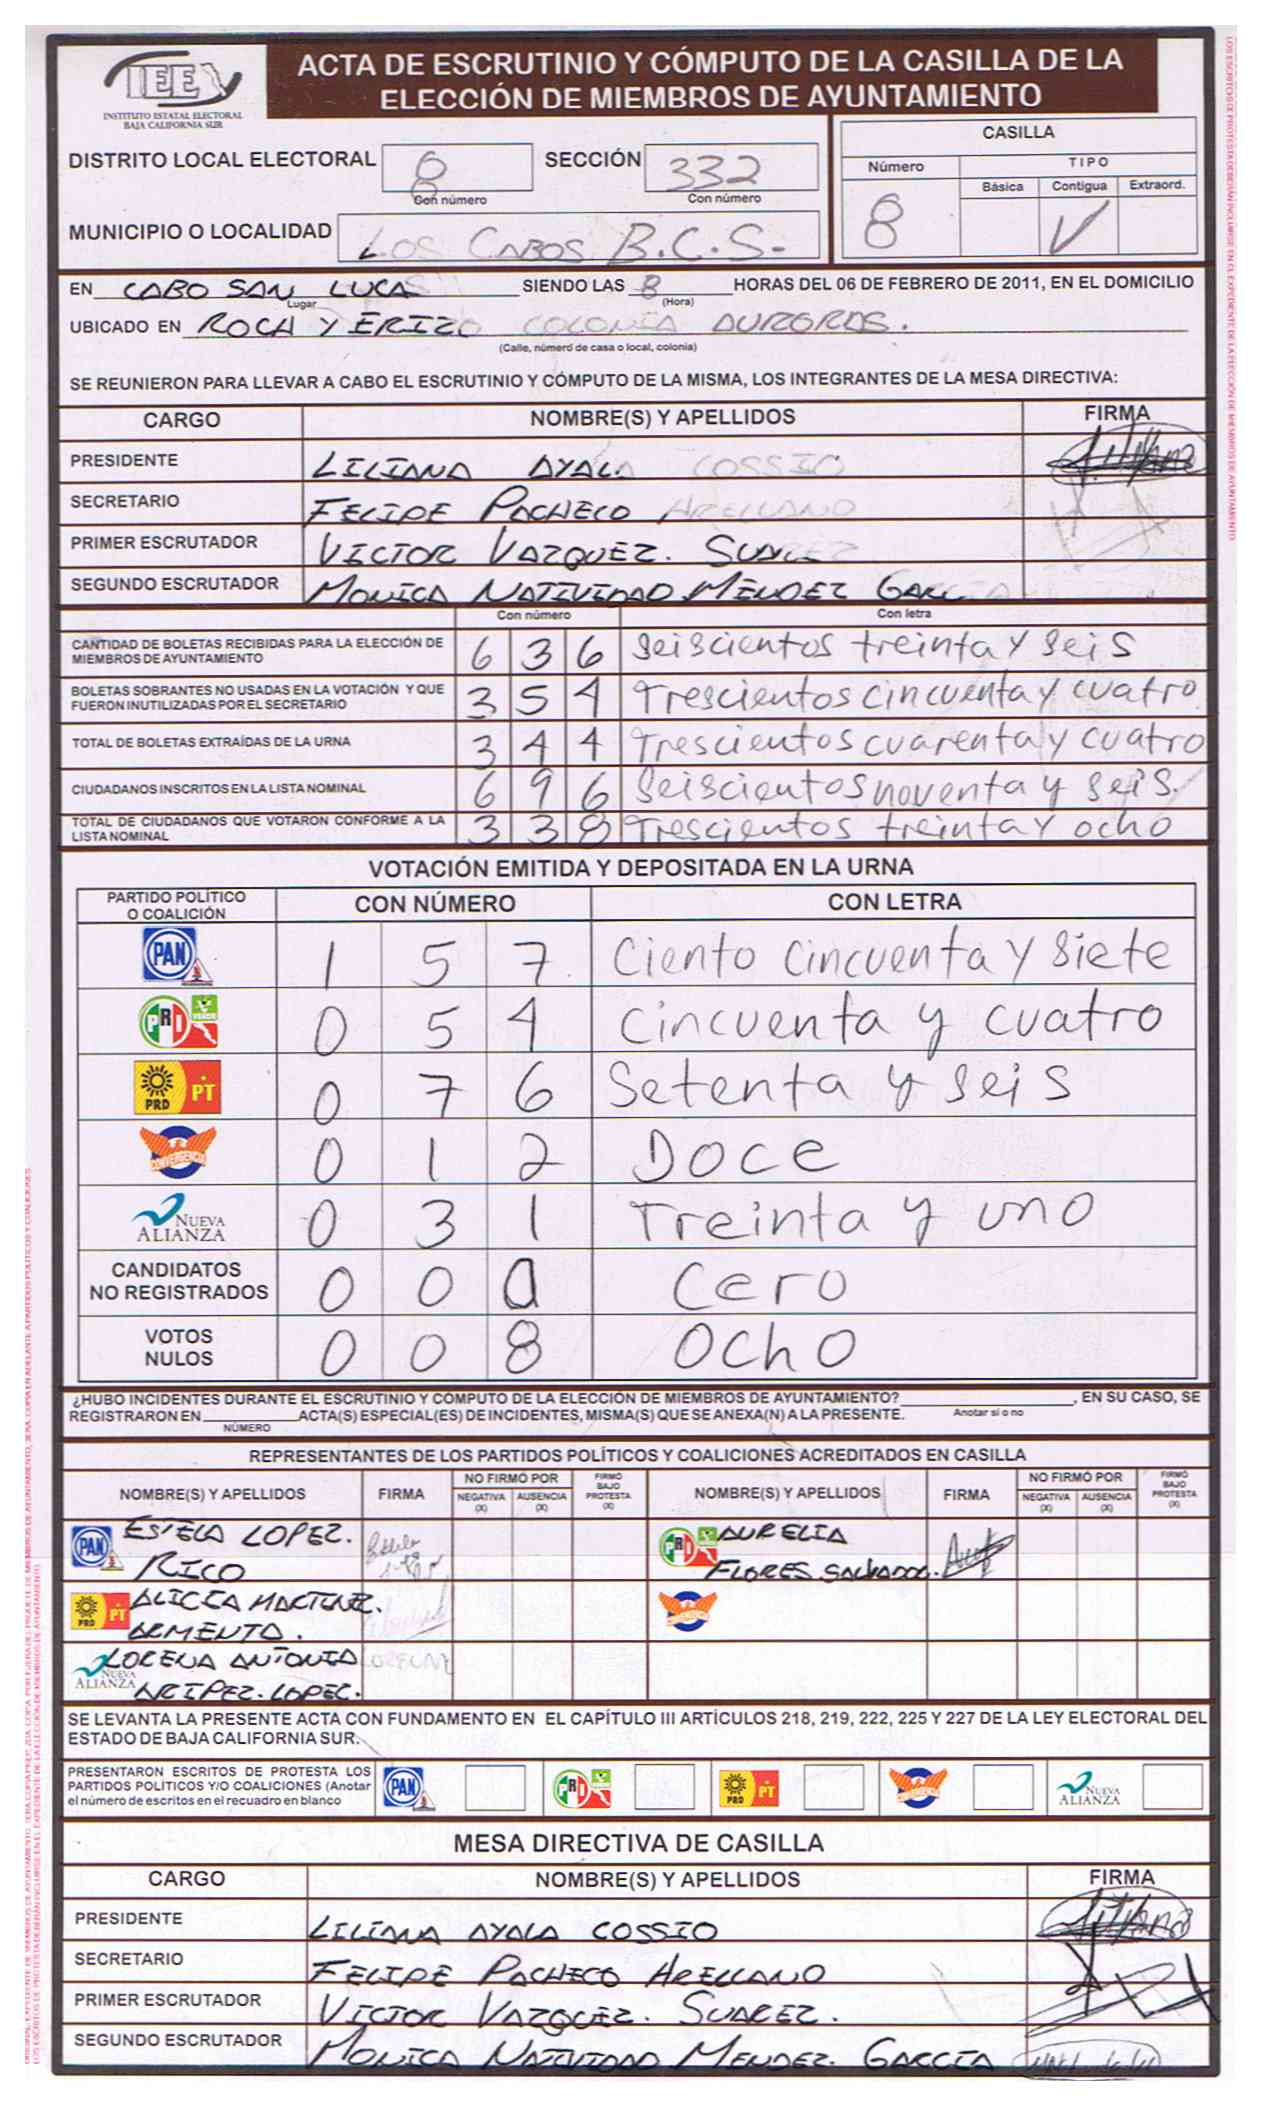 IEE
INSTITUTO ESTATAL ELECTORAL
BAJA CALIFORNIA SUR
ACTA DE ESCRUTINIO Y CÓMPUTO DE LA CASILLA DE LA
ELECCIÓN DE MIEMBROS DE AYUNTAMIENTO
DISTRITO LOCAL ELECTORAL 8 SECCIÓN 332
Con número Con número
MUNICIPIO O LOCALIDAD LOS CABOS B.C.S.
CASILLA
Número TIPO
Básica Contigua Extraord.
8
EN CABO SAN LUCAS SIENDO LAS 8 HORAS DEL 06 DE FEBRERO DE 2011, EN EL DOMICILIO
Lugar (Hora)
UBICADO EN ROCA Y ERIZO COLONIA AURORAS.
(Calle, número de casa o local, colonia)
SE REUNIERON PARA LLEVAR A CABO EL ESCRUTINIO Y CÓMPUTO DE LA MISMA, LOS INTEGRANTES DE LA MESA DIRECTIVA:
CARGO NOMBRE(S) Y APELLIDOS FIRMA
PRESIDENTE LILIANA AYALA COSSIO
SECRETARIO FELIPE PACHECO ARELLANO
PRIMER ESCRUTADOR VICTOR VAZQUEZ. SUAREZ
SEGUNDO ESCRUTADOR MONICA NATIVIDAD MÉNDEZ GARCIA
Con número Con letra
CANTIDAD DE BOLETAS RECIBIDAS PARA LA ELECCIÓN DE
MIEMBROS DE AYUNTAMIENTO 6 3 6 Seiscientos treinta y seis
BOLETAS SOBRANTES NO USADAS EN LA VOTACIÓN Y QUE
FUERON INUTILIZADAS POR EL SECRETARIO 3 5 4 Trescientos cincuenta y cuatro
TOTAL DE BOLETAS EXTRAÍDAS DE LA URNA 3 4 4 Trescientos cuarenta y cuatro
CIUDADANOS INSCRITOS EN LA LISTA NOMINAL 6 9 6 Seiscientos noventa y seis.
TOTAL DE CIUDADANOS QUE VOTARON CONFORME A LA
LISTA NOMINAL 3 3 8 Trescientos treinta y ocho
VOTACIÓN EMITIDA Y DEPOSITADA EN LA URNA
PARTIDO POLÍTICO
O COALICIÓN CON NÚMERO CON LETRA
PAN 1 5 7 Ciento cincuenta y siete
PRI VERDE 0 5 4 Cincuenta y cuatro
PRD PT 0 7 6 Setenta y seis
CONVERGENCIA 0 1 2 Doce
NUEVA ALIANZA 0 3 1 Treinta y uno
CANDIDATOS
NO REGISTRADOS 0 0 0 Cero
VOTOS
NULOS 0 0 8 Ocho
¿HUBO INCIDENTES DURANTE EL ESCRUTINIO Y CÓMPUTO DE LA ELECCIÓN DE MIEMBROS DE AYUNTAMIENTO? , EN SU CASO, SE
Anotar sí o no
REGISTRARON EN ACTA(S) ESPECIAL(ES) DE INCIDENTES, MISMA(S) QUE SE ANEXA(N) A LA PRESENTE.
NÚMERO
REPRESENTANTES DE LOS PARTIDOS POLÍTICOS Y COALICIONES ACREDITADOS EN CASILLA
NOMBRE(S) Y APELLIDOS FIRMA NO FIRMÓ POR NEGATIVA (X) AUSENCIA (X) FIRMÓ BAJO PROTESTA (X) NOMBRE(S) Y APELLIDOS FIRMA NO FIRMÓ POR NEGATIVA (X) AUSENCIA (X) FIRMÓ BAJO PROTESTA (X)
PAN ESTELA LOPEZ. PRI AURELIA
RICO FLORES SALVADOR.
PRD PT ALICIA MARTINEZ.
ARMENTA.
NUEVA ALIANZA LORENA ANTONIA
LOPEZ.
SE LEVANTA LA PRESENTE ACTA CON FUNDAMENTO EN EL CAPÍTULO III ARTÍCULOS 218, 219, 222, 225 Y 227 DE LA LEY ELECTORAL DEL
ESTADO DE BAJA CALIFORNIA SUR.
PRESENTARON ESCRITOS DE PROTESTA LOS
PARTIDOS POLÍTICOS Y/O COALICIONES (Anotar
el número de escritos en el recuadro en blanco
PAN PRI PRD PT NUEVA ALIANZA
MESA DIRECTIVA DE CASILLA
CARGO NOMBRE(S) Y APELLIDOS FIRMA
PRESIDENTE LILIANA AYALA COSSIO
SECRETARIO FELIPE PACHECO ARELLANO
PRIMER ESCRUTADOR VICTOR VAZQUEZ. SUAREZ.
SEGUNDO ESCRUTADOR MONICA NATIVIDAD MENDEZ. GARCÍA